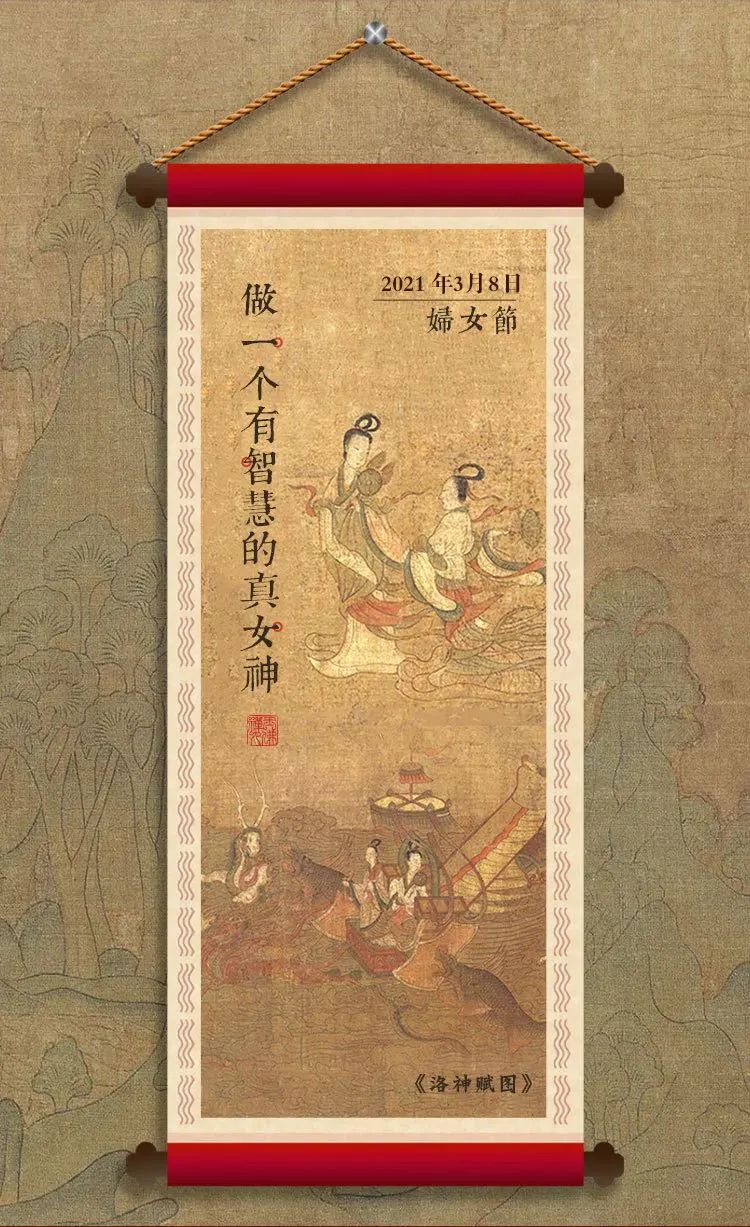 2021 年3月8日
婦女節
做一个有智慧的真女神
《洛神赋图》